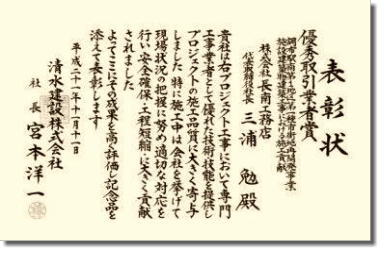 表彰状
優秀取引業者賞
調布駅南第1地区第一種市街地再開発事業
施設建築物建築工事における施工貢献
株式会社 長南工務店
代表取締役社長 三浦 勉 殿
貴社は右プロジェクト工事において専門
工事業者として優れた技術技能を提供し
プロジェクトの施工品質に大きく寄与
しました 特に施工中は会社を挙げて
現場状況の把握に努め適切な対応を
行い安全確保・工程短縮に大きく貢献
されました
よってここにその成果を高く評価し記念品を
添えて表彰します
平成二十一年十一月十一日
清水建設株式会社
社長 宮本洋一